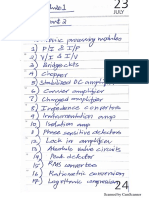 23
JULY
part 2
processing modules
1) P/I & I/P
2) V/I & I/V
3) Bridge ckts
4) Chopper
5) Stabilized DC amplifier
6) Carrier amplifier
7) Charged amplifier
8) Impedance converters
9) Instrumentation amp
10) Isolation amp
11) Phase sensitive detectors
12) Lock in amplifier
13) Absolute value circuits
14) Peak detector
15) RMS conversion
16) Ratiometric conversion
17) Logarithmic compression
24
Scanned by CamScanner